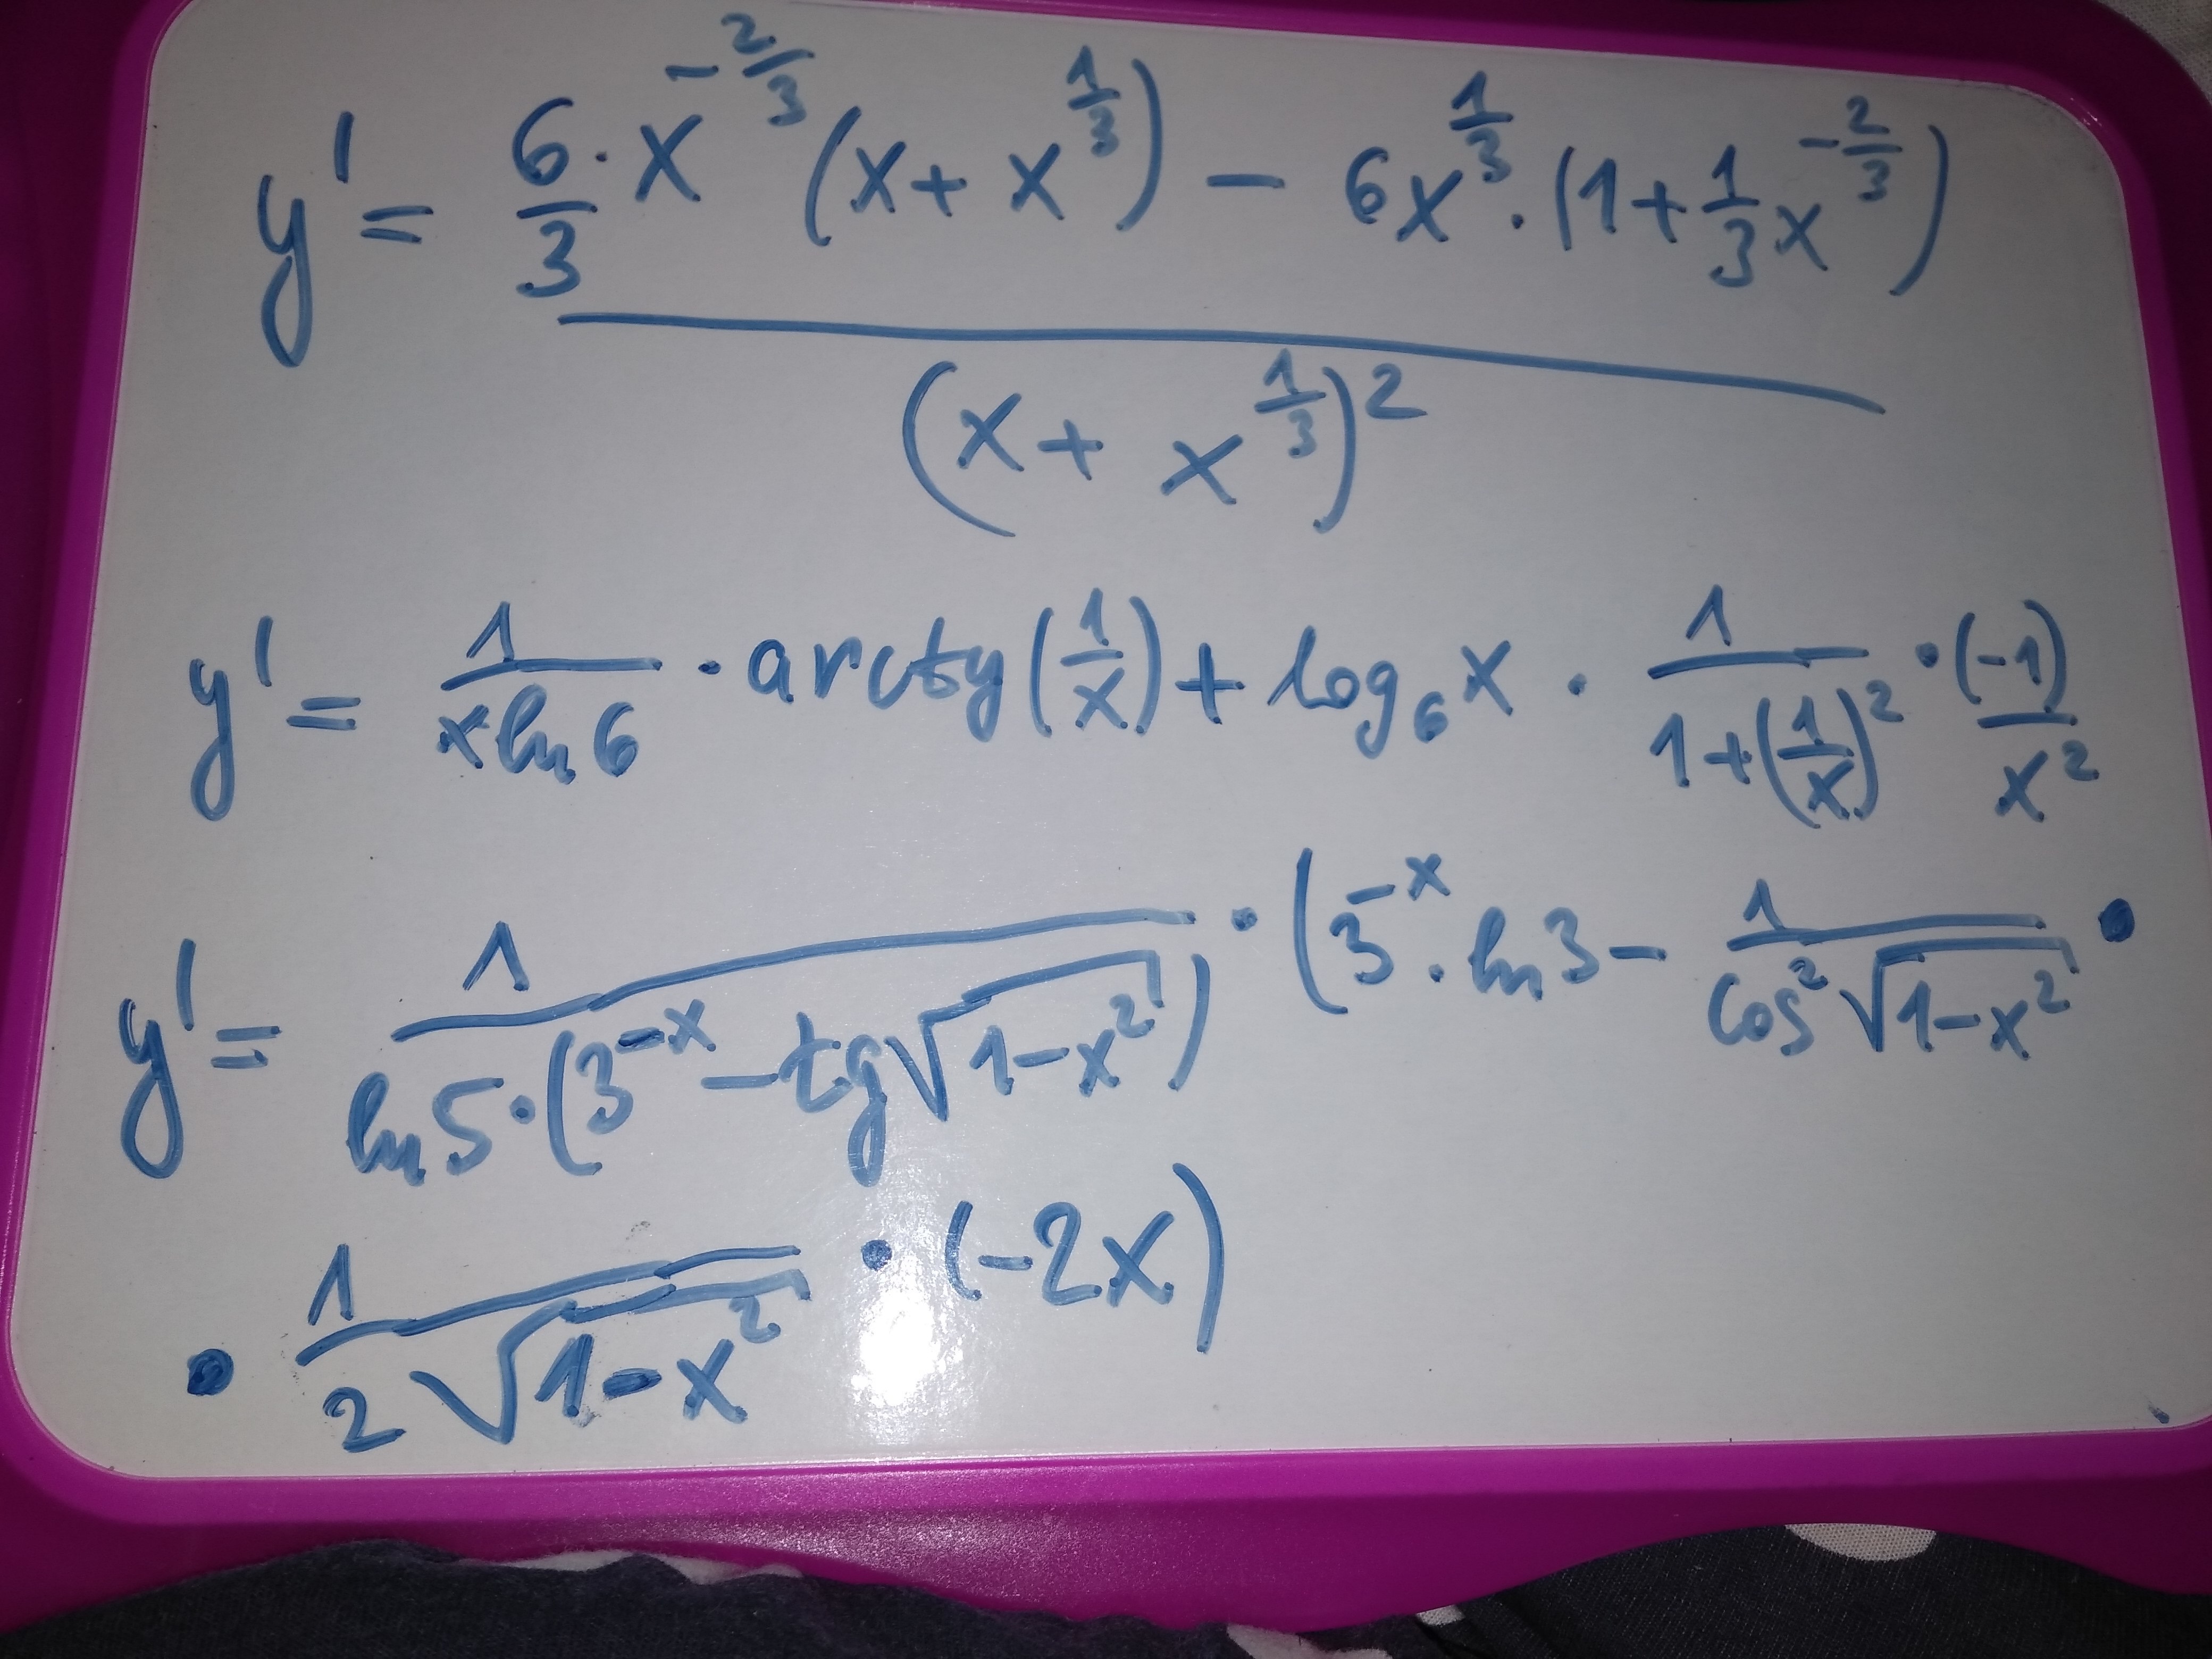 y' = \frac{\frac{6}{3} \cdot x^{-\frac{2}{3}} (x + x^{\frac{1}{3}}) - 6x^{\frac{1}{3}} \cdot (1 + \frac{1}{3} x^{-\frac{2}{3}})}{(x + x^{\frac{1}{3}})^2}
y' = \frac{1}{x \ln 6} \cdot arctg(\frac{1}{x}) + \log_6 x \cdot \frac{1}{1 + (\frac{1}{x})^2} \cdot \frac{(-1)}{x^2}
y' = \frac{1}{\ln 5 \cdot (3^{-x} - tg \sqrt{1-x^2})} \cdot (3^{-x} \cdot \ln 3 - \frac{1}{\cos^2 \sqrt{1-x^2}} \cdot
\cdot \frac{1}{2\sqrt{1-x^2}} \cdot (-2x))